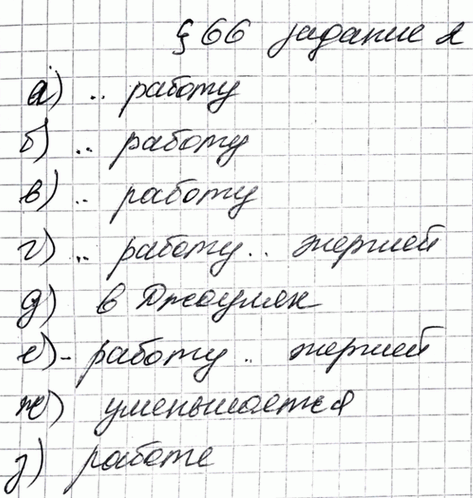 § 66 задание 2
а) .. работу
б) .. работу
в) .. работу
г) .. работу .. энергией
д) в Джоулях
е) - работу .. энергией
ж) уменьшается
з) работе